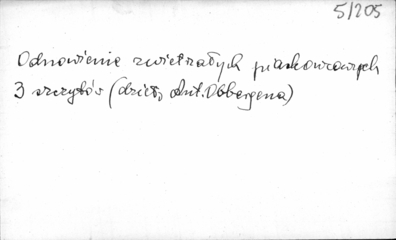 5/205
Odnowienie zwietrzałych piaskowcowych
3 szczytów (dzieł, Ant. Obbergena)